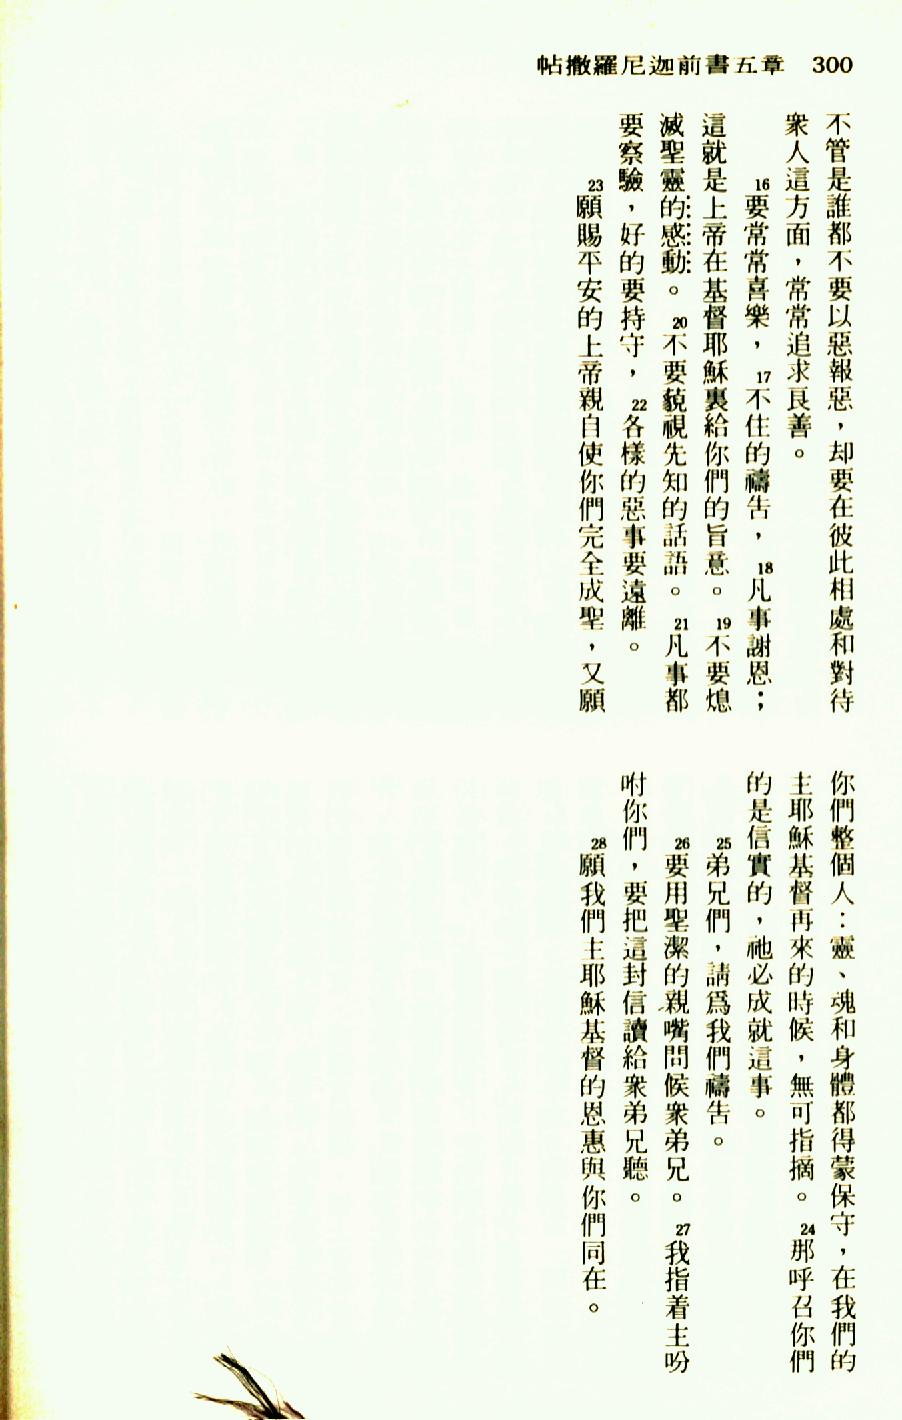 帖撒羅尼迦前書五章 300
不管是誰都不要以惡報惡，却要在彼此相處和對待
衆人這方面，常常追求良善。
16要常常喜樂，17不住的禱告，18凡事謝恩；
這就是上帝在基督耶穌裏給你們的旨意。19不要熄
滅聖靈的感動。20不要藐視先知的話語。21凡事都
要察驗，好的要持守，22各樣的惡事要遠離。
23願賜平安的上帝親自使你們完全成聖，又願
你們整個人：靈、魂和身體都得蒙保守，在我們的
主耶穌基督再來的時候，無可指摘。24那呼召你們
的是信實的，祂必成就這事。
25弟兄們，請爲我們禱告。
26要用聖潔的親嘴問候衆弟兄。27我指着主吩
咐你們，要把這封信讀給衆弟兄聽。
28願我們主耶穌基督的恩惠與你們同在。